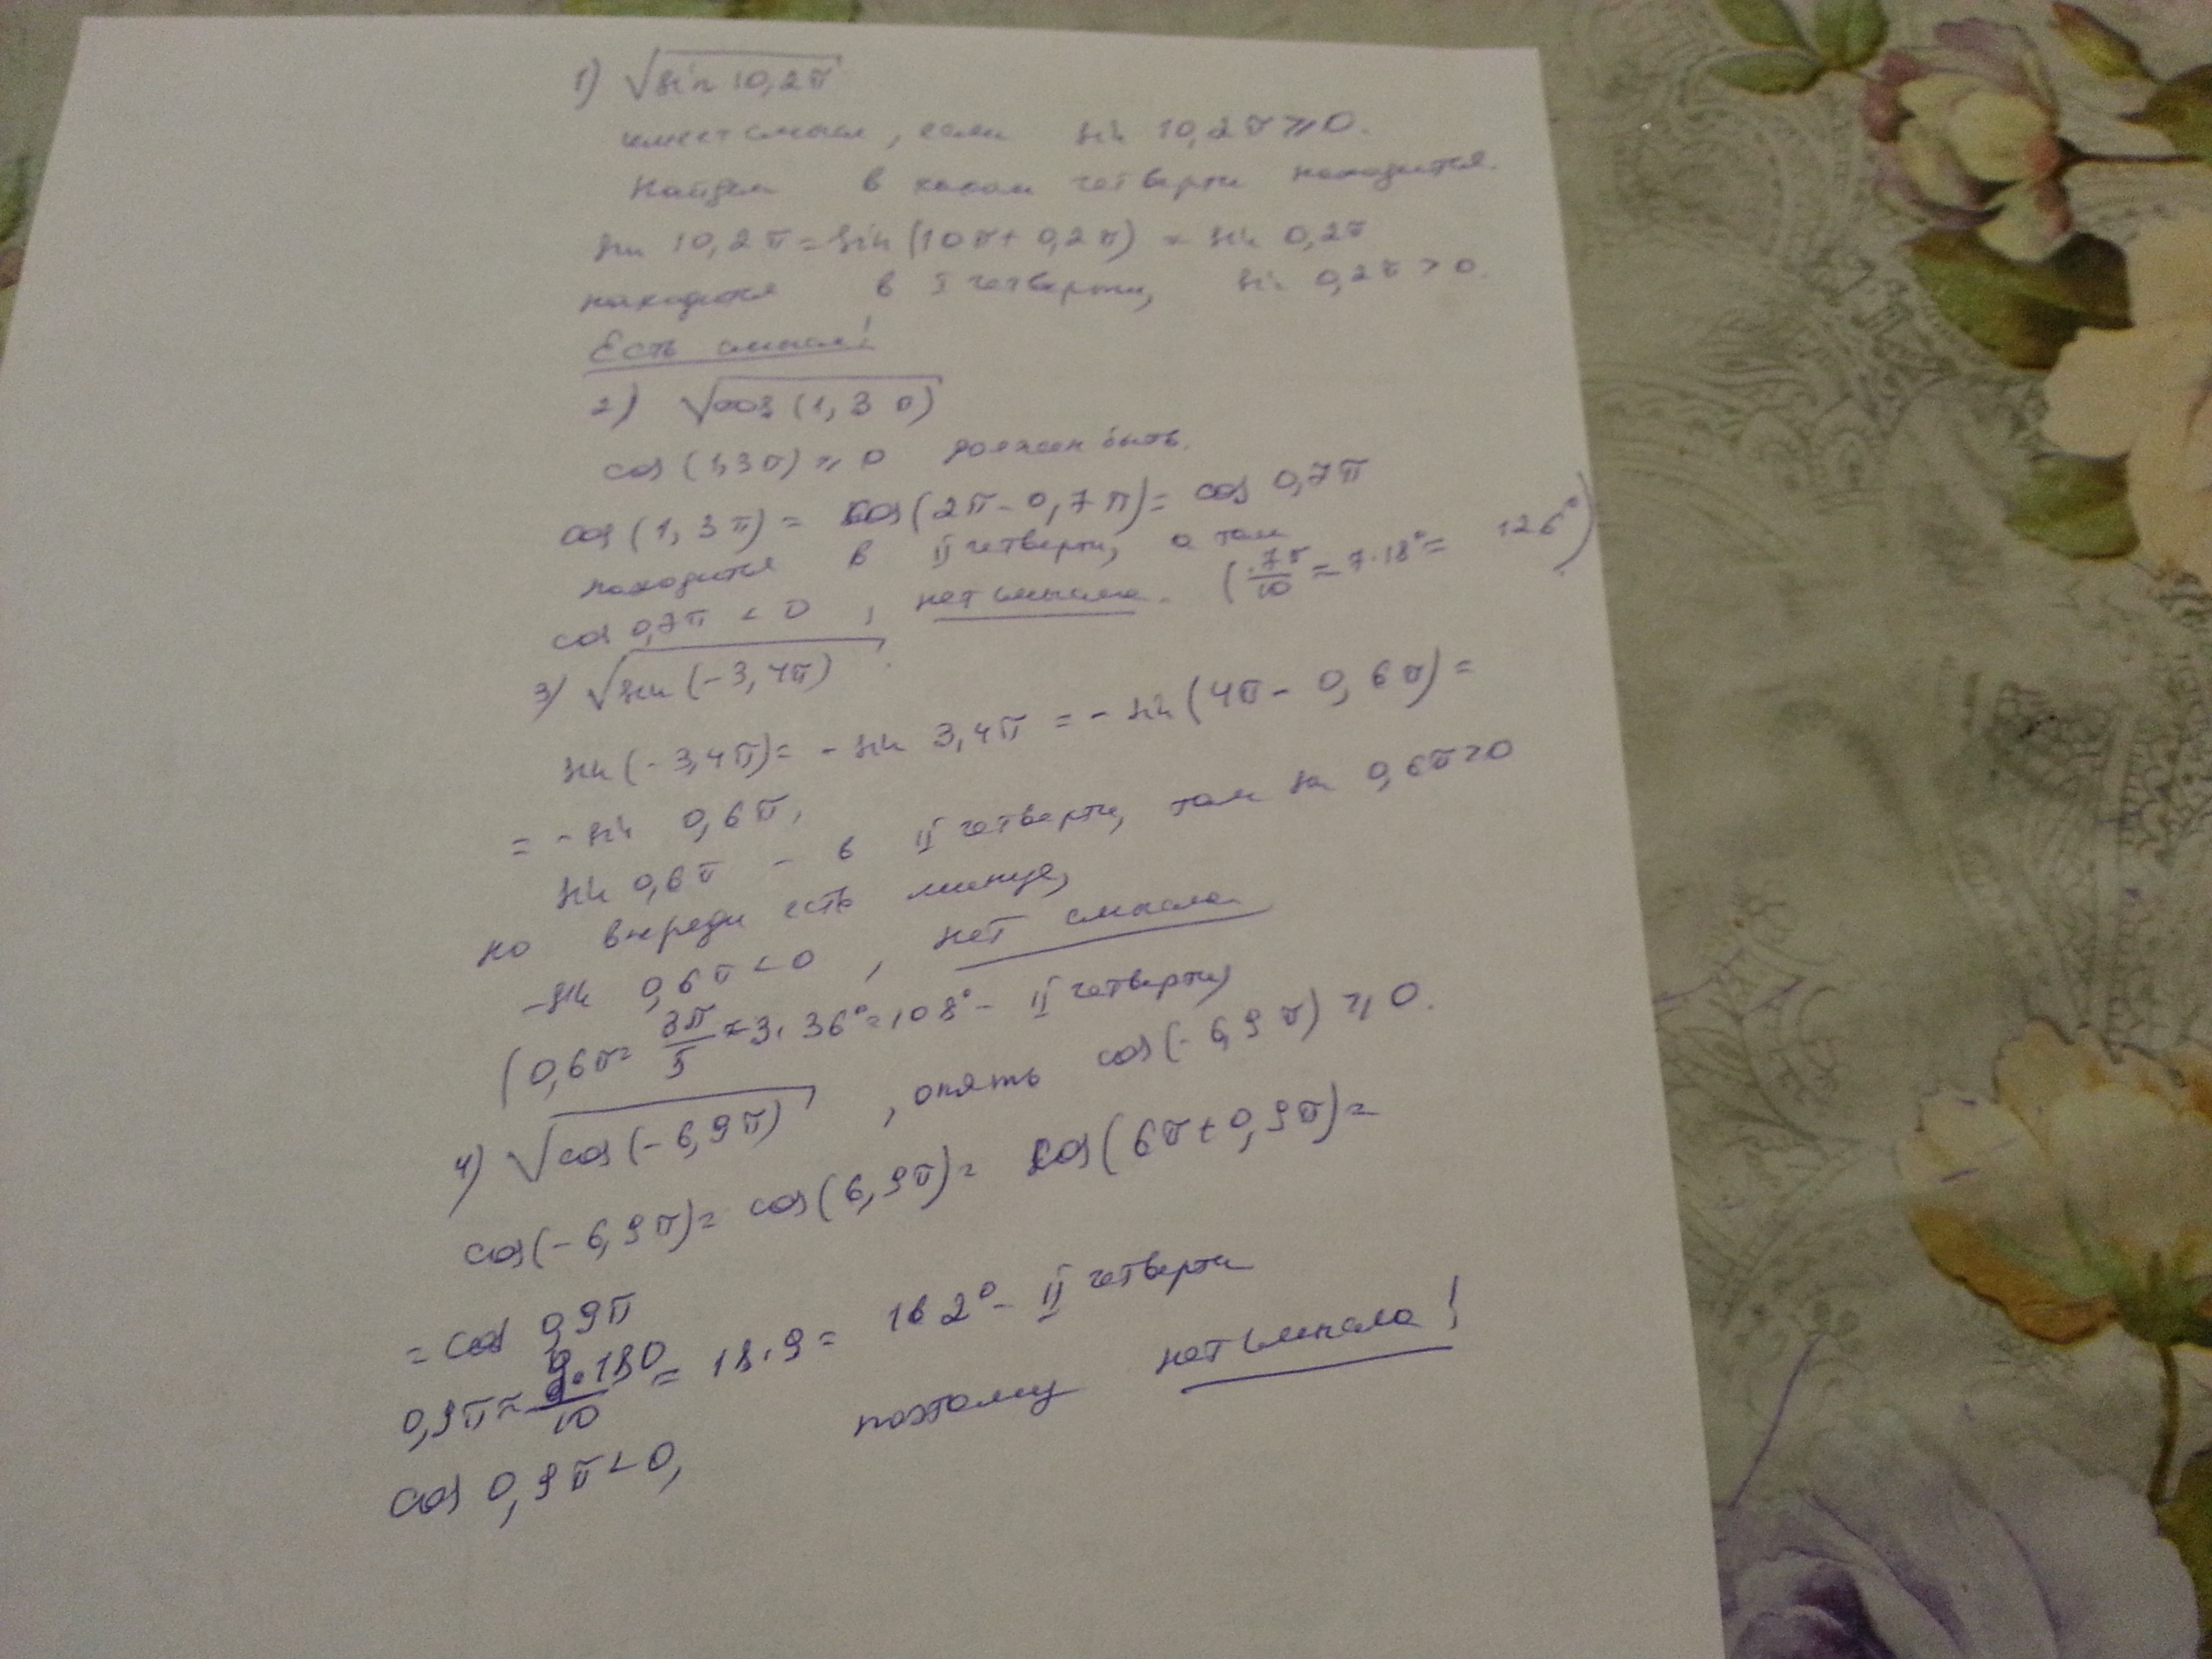 1) √sin 10,2π
имеет смысл, если sin 10,2π ≥ 0.
Найдем в каком четверти находится.
sin 10,2π = sin (10π + 0,2π) = sin 0,2π
находится в I четверти, sin 0,2π > 0.
Есть смысл!
2) √cos (1,3π)
cos (1,3π) ≥ 0 должен быть.
cos (1,3π) = cos (2π - 0,7π) = cos 0,7π
находится в II четверти, а там
cos 0,7π < 0, нет смысла. (7π/10 = 7·18° = 126°)
3) √sin (-3,4π)
sin (-3,4π) = - sin 3,4π = - sin (4π - 0,6π) =
= - sin 0,6π,
sin 0,6π - в II четверти, там sin 0,6π > 0
но впереди есть минус,
-sin 0,6π < 0, нет смысла
(0,6π = 3π/5 = 3·36° = 108° - II четверти)
4) √cos (-6,9π), опять cos (-6,9π) ≥ 0.
cos (-6,9π) = cos (6,9π) = cos (6π + 0,9π) =
= cos 0,9π
0,9π = 9·180/10 = 18·9 = 162° - II четверти
cos 0,9π < 0, поэтому нет смысла!